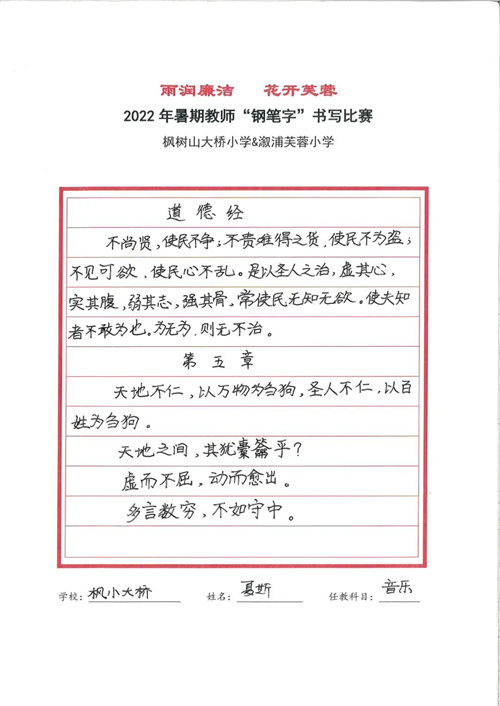 雨润廉洁 花开芙蓉
2022年暑期教师“钢笔字”书写比赛
枫树山大桥小学&溆浦芙蓉小学
道德经
不尚贤,使民不争;不贵难得之货,使民不为盗;
不见可欲,使民心不乱。是以圣人之治,虚其心,
实其腹,弱其志,强其骨。常使民无知无欲。使夫知
者不敢为也。为无为,则无不治。
第五章
天地不仁,以万物为刍狗,圣人不仁,以百
姓为刍狗。
天地之间,其犹橐籥乎?
虚而不屈,动而愈出。
多言数穷,不如守中。
学校:枫小大桥 姓名:夏斯 任教科目:音乐